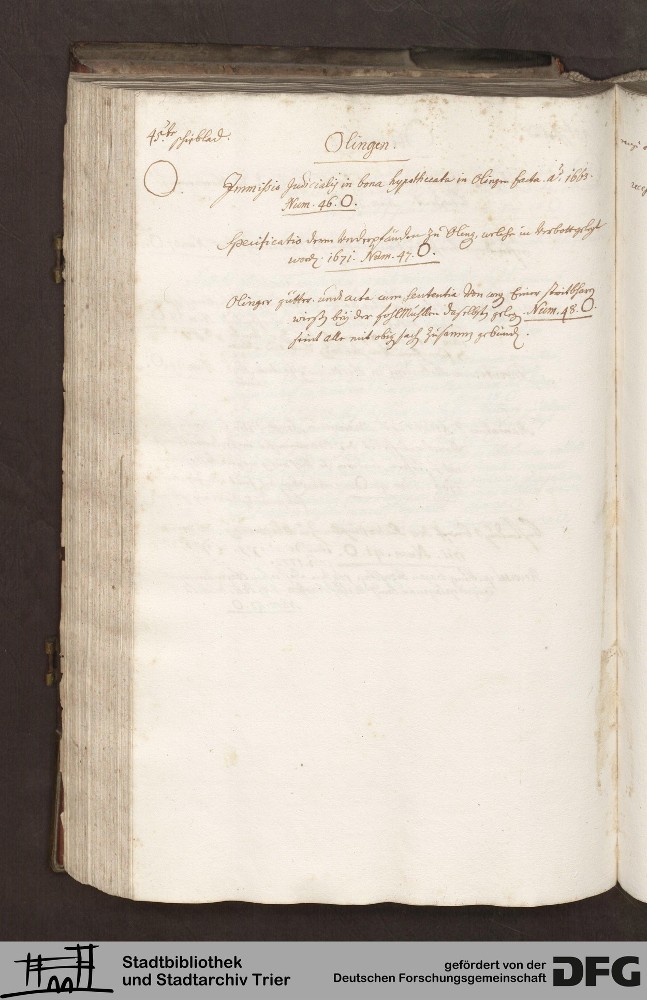 45.te schieblad.
Olingen.
O.
Immissio Judicialis in bona hypothecata in Olingen facta. aº 1663.
Num. 46. O.
Specificatio deren Underpfänden zu Oling, welche in Verbott gelegt
word. 1671. Num. 47. O.
Olinger gütter. undt acta cum sententia von weg Einer
bey der daselbst geleg. Num. 48. O.
seint alle mit obig sach zusamm gebund.
Stadtbibliothek
und Stadtarchiv Trier
gefördert von der
Deutschen Forschungsgemeinschaft
DFG